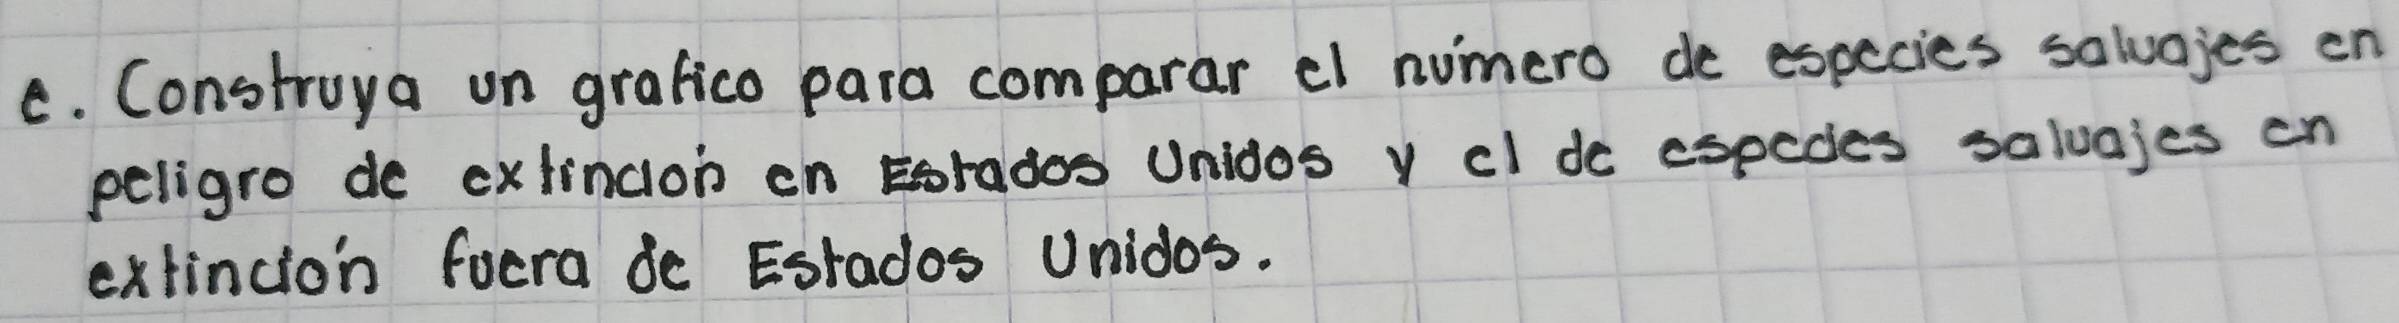 e. Construya un grafico para comparar el número de especies salvajes en
peligro de extinción en Estados Unidos y el de especies salvajes en
extinción fuera de Estados Unidos.